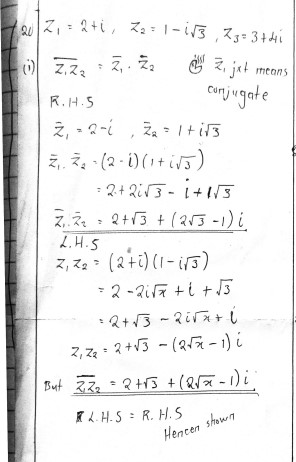 20) Z₁ = 2+i, Z₂ = 1-i√3, Z₃ = 3+4i
(i) \overline{Z₁Z₂} = Z̄₁ · Z̄₂ Z̄, jst means
conjugate
R.H.S
Z̄₁ = 2-i, Z̄₂ = 1+i√3
Z̄₁. Z̄₂ = (2-i)(1+i√3)
= 2+2i√3 - i+√3
Z̄₁. Z̄₂ = 2+√3 + (2√3-1)i
L.H.S
Z₁Z₂ = (2+i)(1-i√3)
= 2-2i√x + i + √3
= 2+√3 - 2i√x + i
Z₁Z₂ = 2+√3 - (2√x-1)i
But \overline{Z₁Z₂} = 2+√3 + (2√x-1)i
L.H.S = R.H.S
Hencen shown